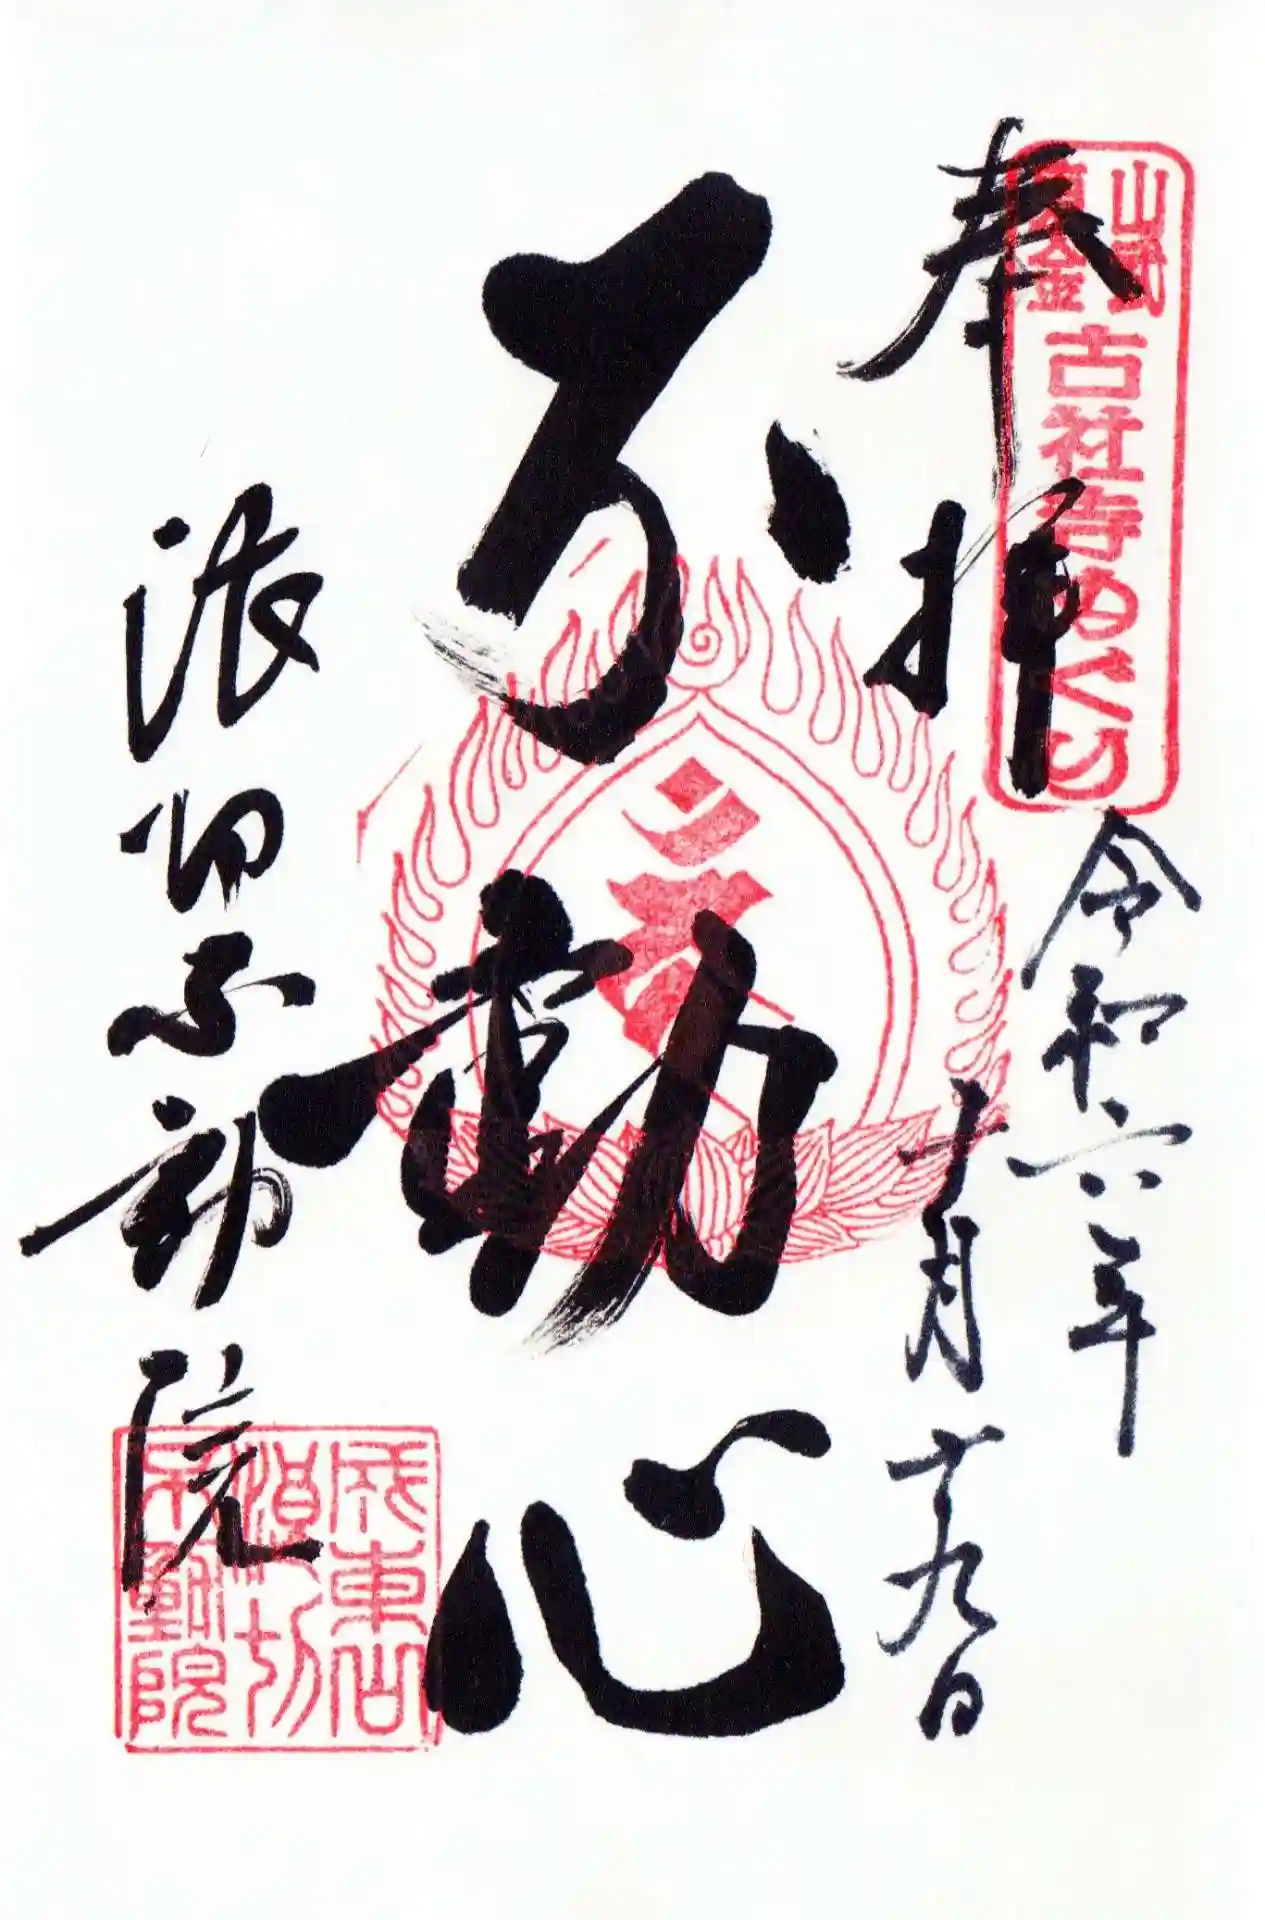 奉拝
山武
東金
古社寺めぐり
令和六年
十月十九日
不動心
浪切不動院
成東山
浪切
不動院